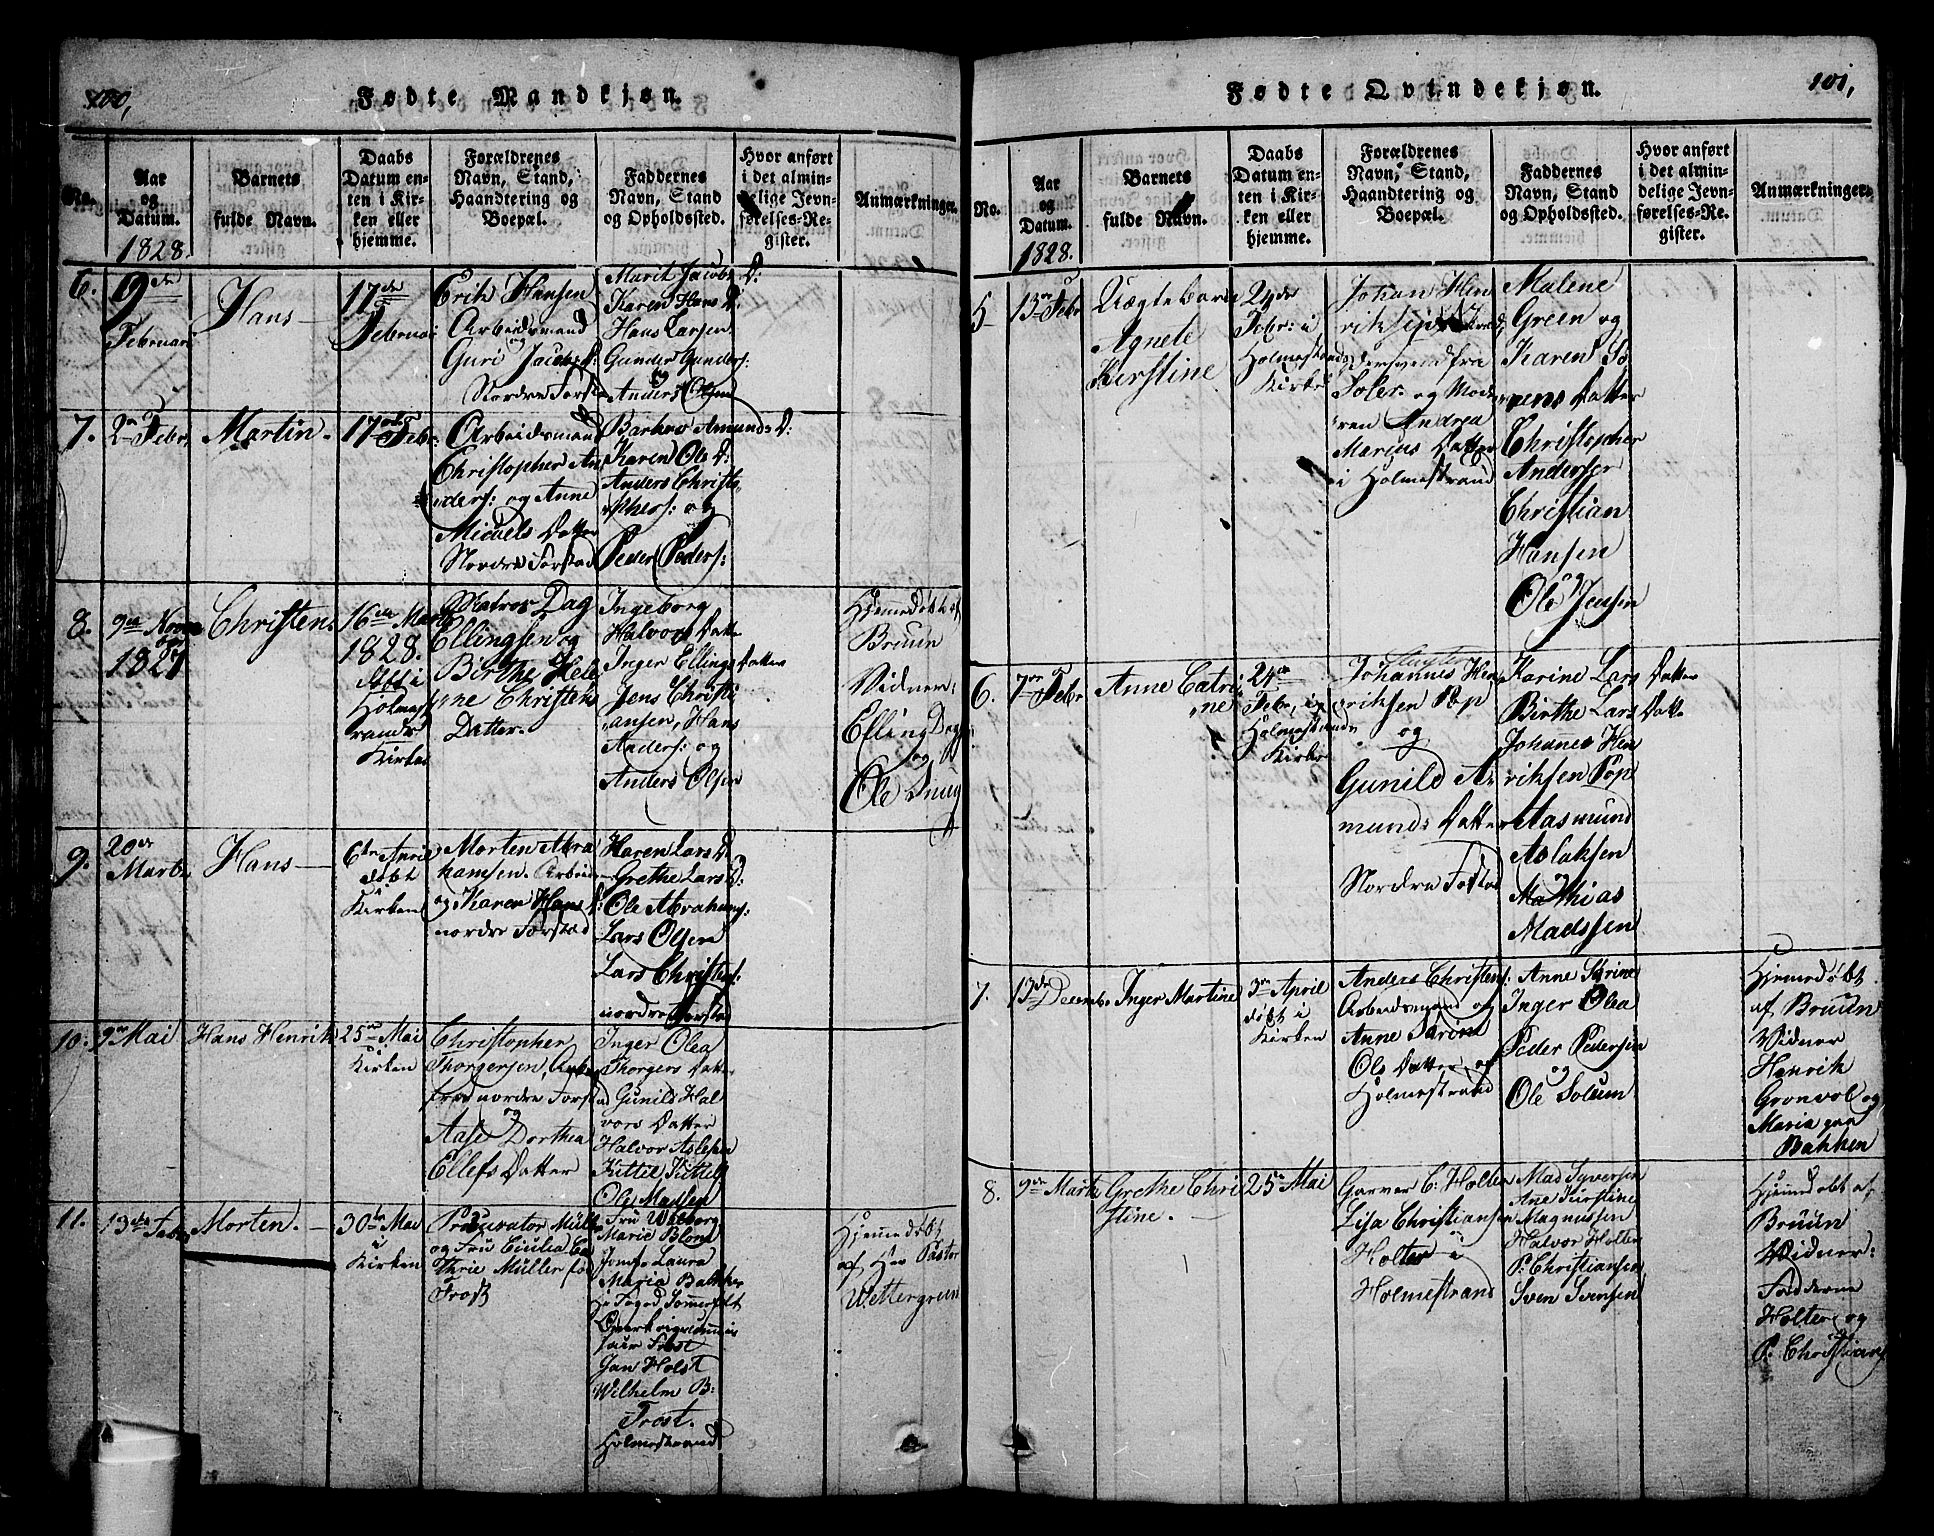 100,
Fødte Mandkjøn.
No.
Aar
og
Datum.
1828.
Barnets
fulde Navn.
Daabs
Datum en-
ten i Kir-
ken eller
hjemme.
Forældrenes
Navn, Stand,
Haandtering og
Boepæl.
Faddernes
Navn, Stand
og Opholdssted.
Hvor anført
i det almin-
delige Jevn-
førelses-Re-
gister.
Anmærkninger.
6.
9de
Februari
Hans
17de
Februai
Erik Hansen
Arbeidsmand
og
Guri Jacobs D:
Nordre Forsta
Marit Jacobs D:
Karen Hans D:
Hans Larsen
Gunder Gunders:
og
Anders Olsen
7.
2n Febr,
Martin.
17de Febr:
Arbeidsmand
Christopher An
ders: og Anne
Micaels Datter
Nordre Forstad
Amunds D:
Karen Ols D:
Anders Christo
phers: og
Peder Peders:
8.
9de Novem
1827
Christen.
16de Marts
1828.
døbt i
Holmest
rands
Kirke
Matros Dag
Ellingsen og
Birthe Hele
ne Christens
Datter.
Ingeborg
Halvors Datte
Inger Ellings Datter
Jens Christi
ansen, Hans
Anders: og
Anders Olsen
Hjemedøbt af
Bruun
Vidner,
Elling Dag
og
Ole
9.
20de
Marts
Hans
6te April
døbt
i
Kirken
Morten Abra
hamsen. Arbeids
og Karen Hans D:
nordre Forstad
Karen Lars D.
Grethe Lars D:
Ole Abrahams:
Lars Olsen
Lars Christens:
nordre Forstad
10.
9de Mai
Hans Henrik
25de Mai
Kirken
Christopher
Thorgersen, Arbei
nordre Forstad
og
Aase Dorthea
Ellefs Datter
Inger Olea
Thorgers Datte
Gunild Hal
vors Datter
Halvor Aslesen
Kittil Kittils
Ole Madsen
11.
13de Febr
Morten.
30te Mai
i
Kirken
Procurator Müll
og Fru Ca
thrie Müller fød
Frost
Fru Walborg
Marie Blom
Jomfr Laura
Maria Bakke
Hr Foged Sommerfelt
Frost
Jan Holst
Wilhelm B:
Frost.
Holmestrand
Hjemmedøbt
af Her Pastor
Wettergreen
101,
Fødte Qvindekjøn.
No.
Aar
og
Datum.
1828.
Barnets
fulde Navn.
Daabs
Datum en-
ten i Kir-
ken eller
hjemme.
Forældrenes
Navn, Stand,
Haandtering og
Boepæl.
Faddernes
Navn, Stand
og Opholdssted.
Hvor anført
i det almin-
delige Jevn-
førelses-Re-
gister.
Anmærkninger.
5
13de Febr
Uægtebarn
Agnete
Kirstine
24de
Febr: i
Holmestrands
Kirke
Johan Hen
riksen
fra
og Mode
ren Andrea
Marcus Datter
i Holmestrand
Malene
Green og
Karen Sø
rens Datter
Christopher
Andersen
Christian
Hansen
og
Ole Jensen
6.
7de Febr
Anne Catri
ne
24de
Febr, i
Holmestrands
Kirke
Johannes Hen
riksen Pop
og
Gunild A
munds Datter
Nordre Forstad
Karine Lars Datter
Birthe Lars Datte
Johannes Hen
riksen Pop
Aasmund
Aslaksen
og
Mathias
Madssen
7.
13de Decembr
Inger Martine
3de April
døbt i
Kirken
Anders Christens:
Arbeidsmand og
Anne Karine
Ols Datter af
Holmestrand
Anne Karine
Inger Olea
Peder Pedersen
og
Ole Solum
Hjemedøbt
af Bruun
Vidner
Henrik
Gronvol og
Maria paa
Bakken
8.
9de Marts
Grethe Chri
stine.
25de Mai
Garver C: Holter
Lisa Christiansen
Holter i
Holmestrand
Mad Syversen
Ane Kirstine
Magnussen
Halvor Holter
P. Christiansen
Sven Svensen
Hjemdøbt af
Bruun
Widner:
Fadderne
Holter og
P. Christians